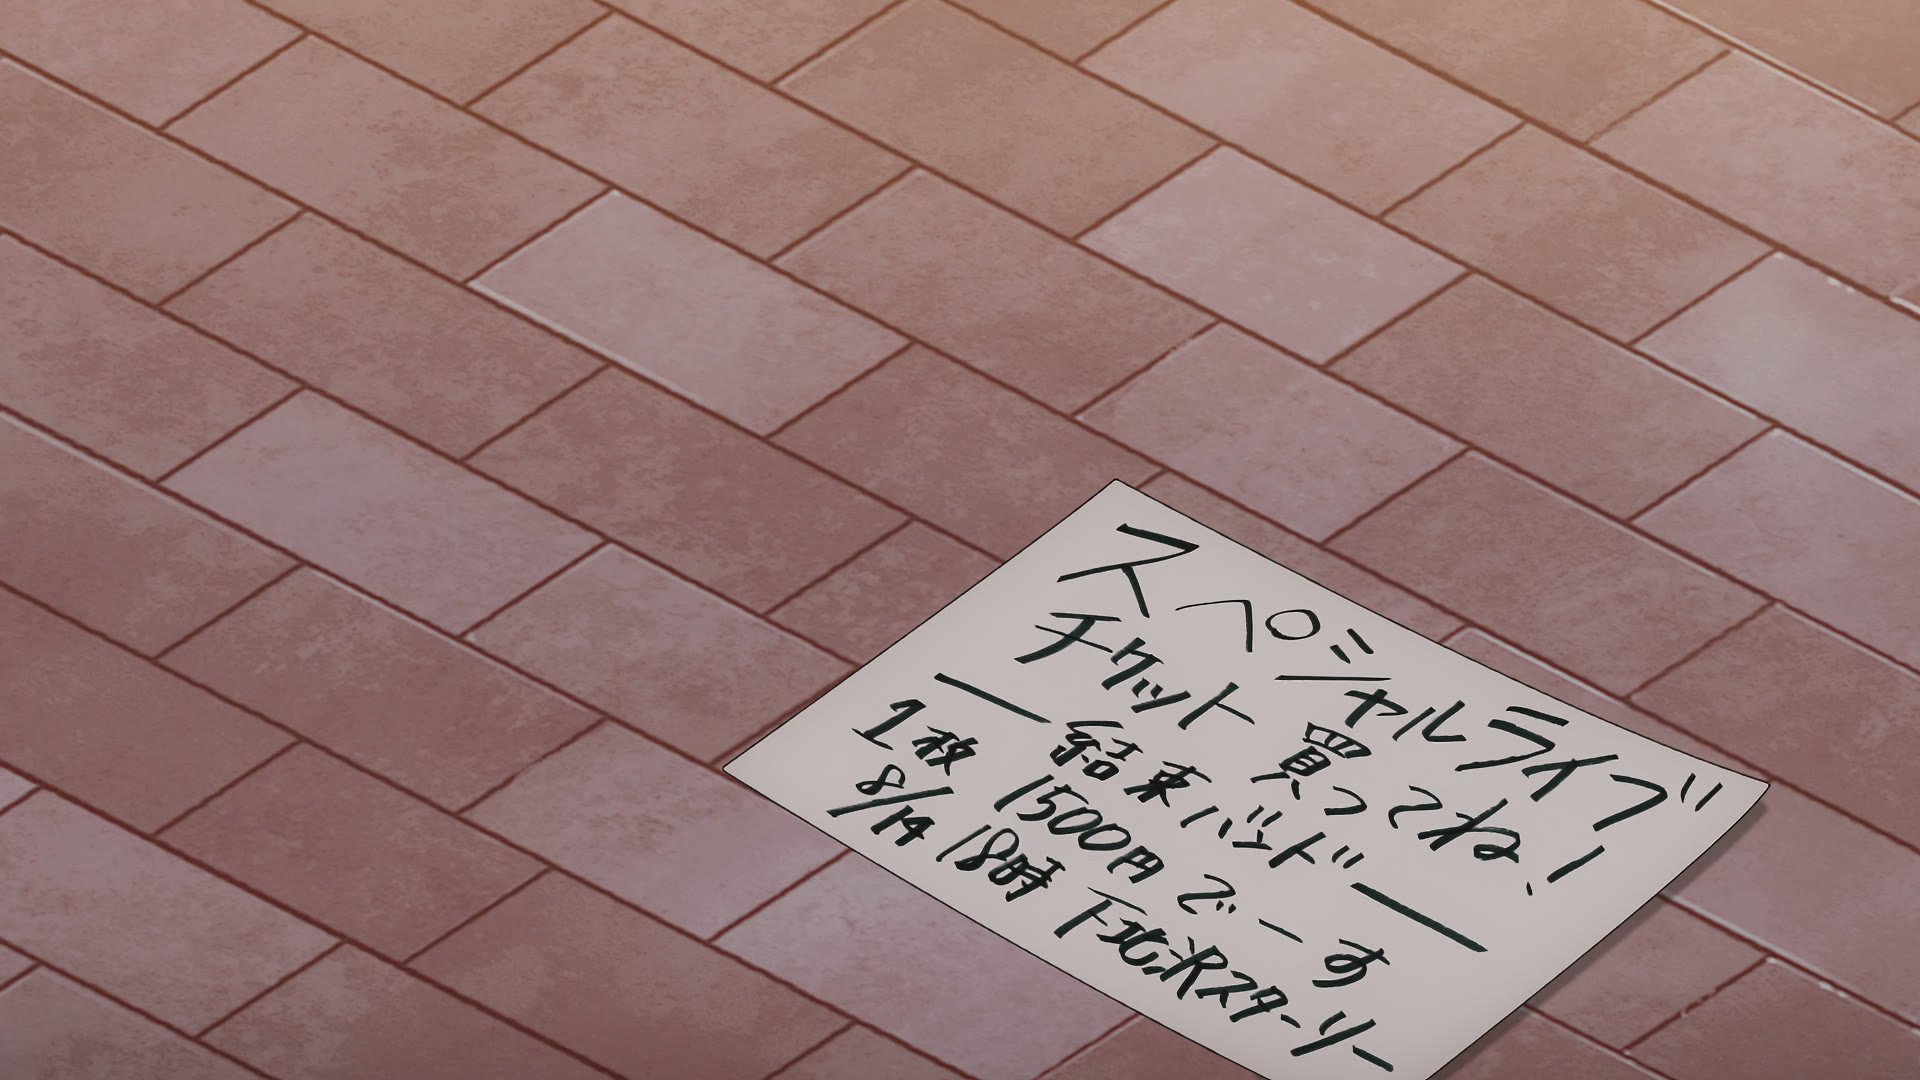 スペシャルライブ
チケット買ってね!
― 結束バンド ―
1枚 1500円でーす
8/14 18時 下北沢スターリー